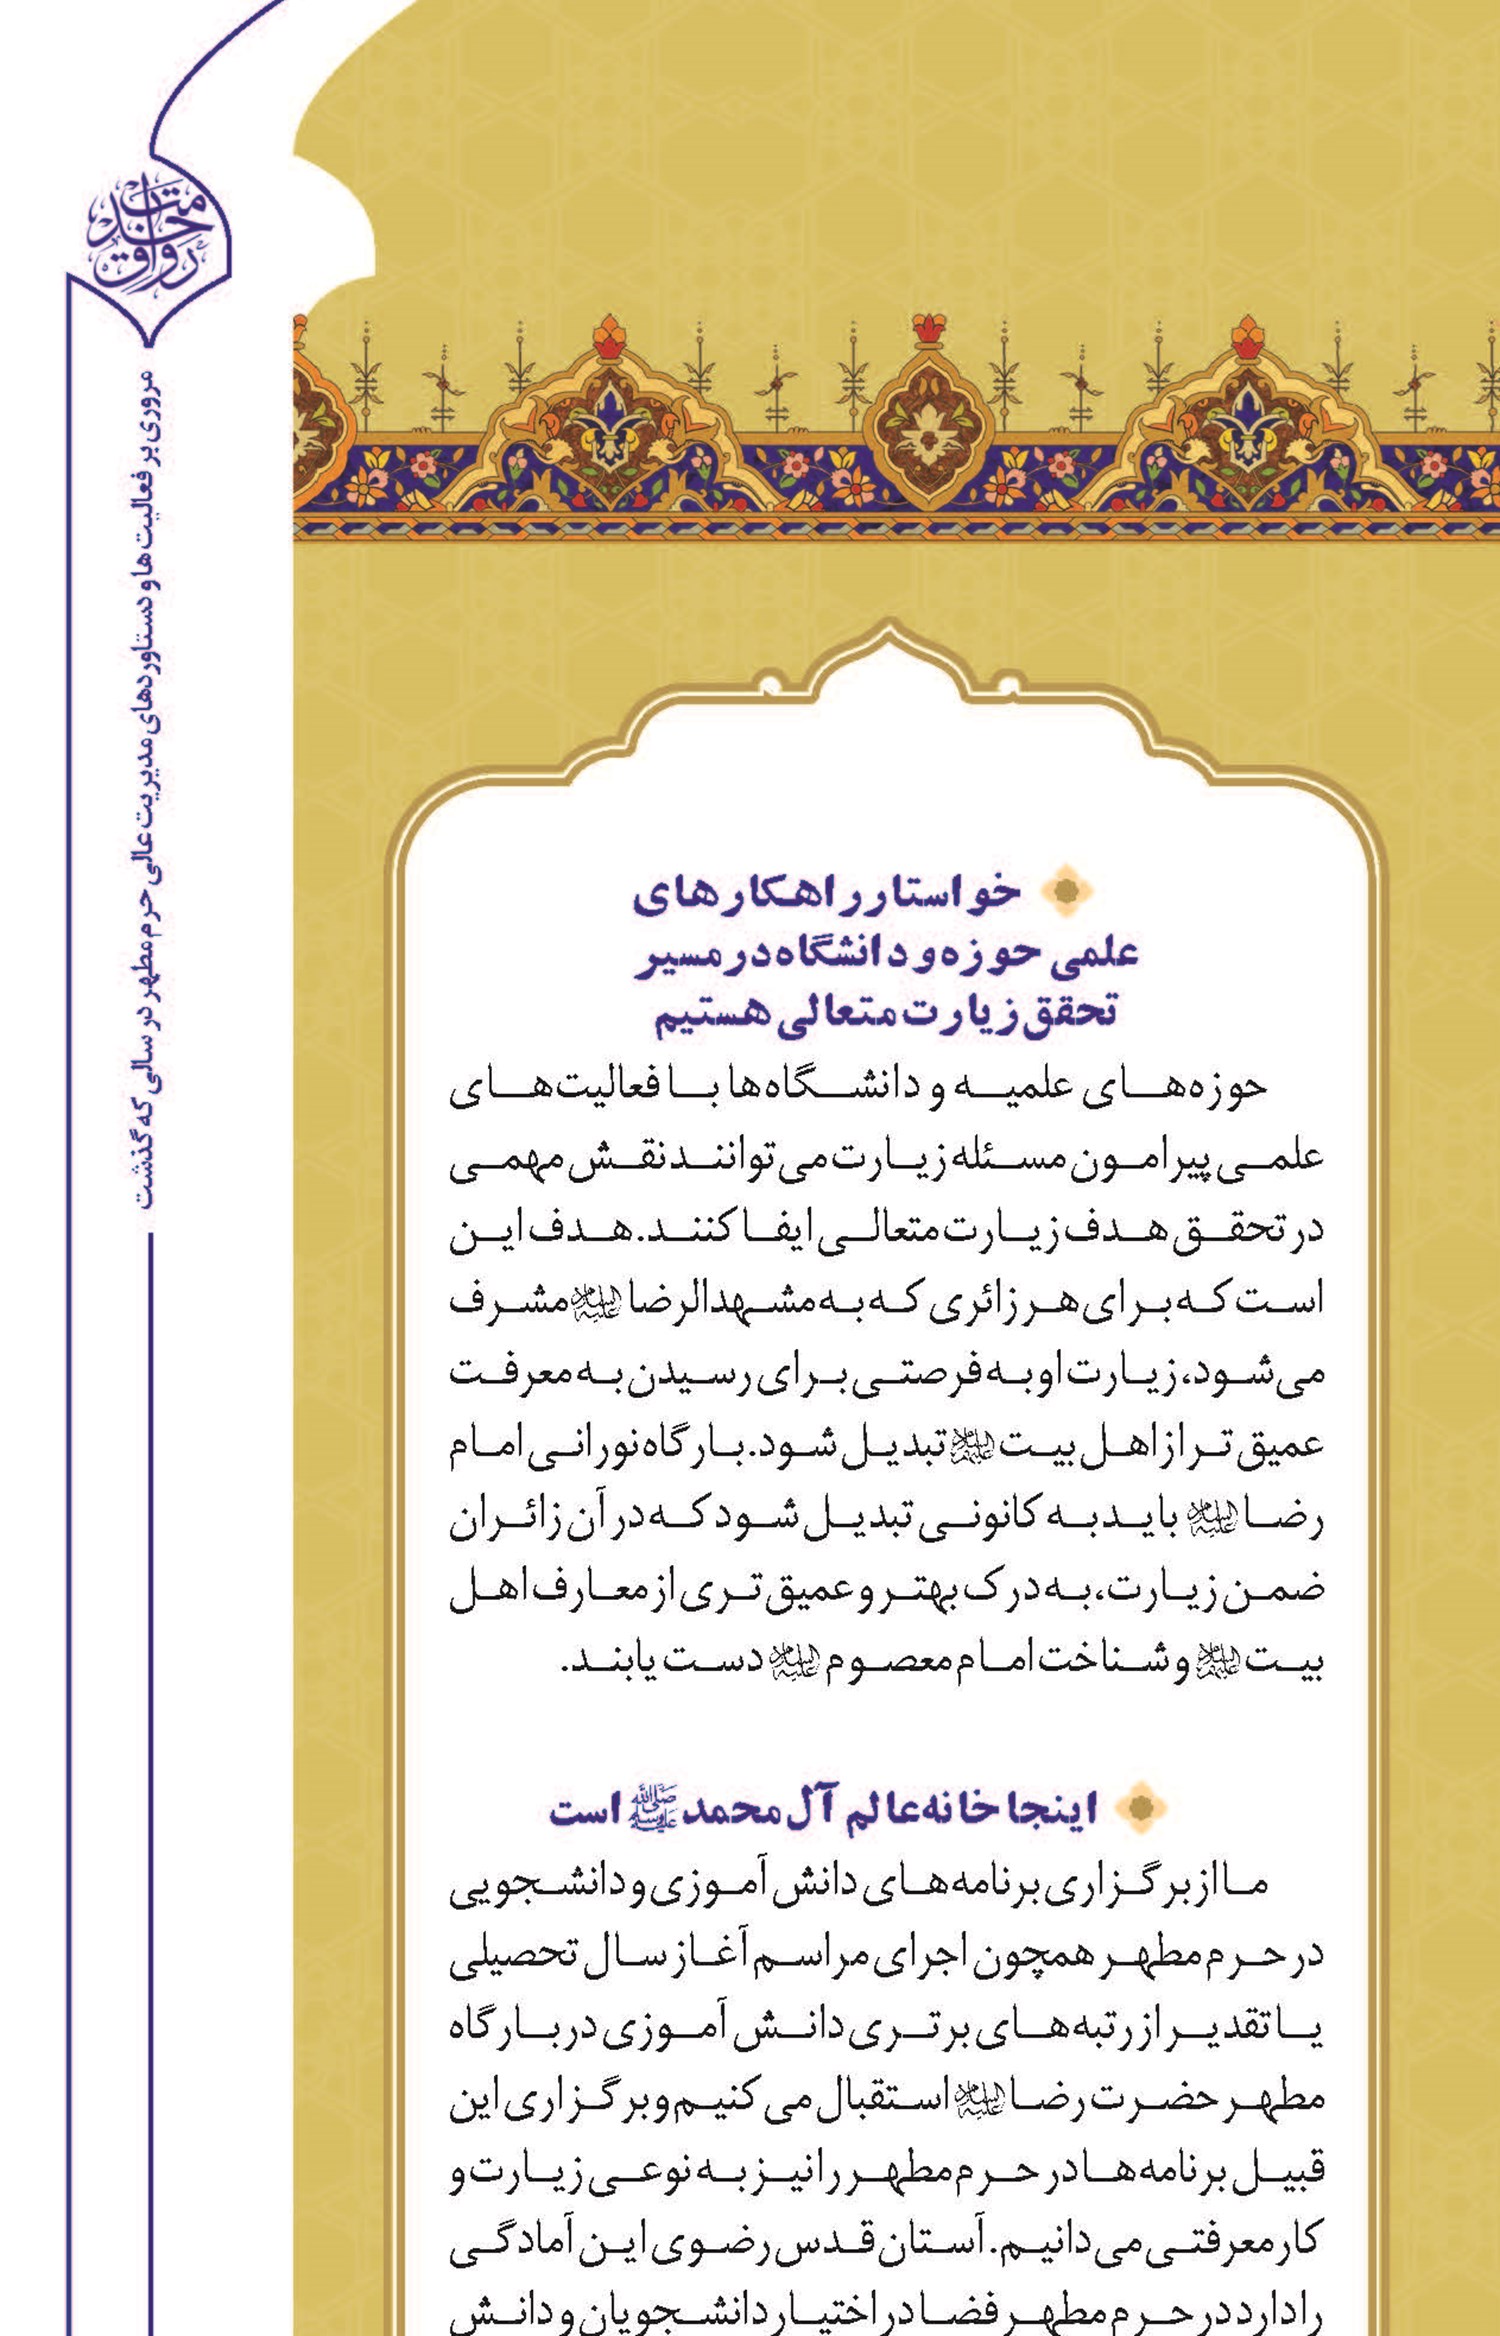 رواق خدمت
مروری بر فعالیت‌ها و دستاوردهای مدیریت عالی حرم مطهر در سالی که گذشت
خواستار راهکارهای
علمی حوزه و دانشگاه در مسیر
تحقق زیارت متعالی هستیم
حوزه‌های علمیه و دانشگاه‌ها با فعالیت‌های
علمی پیرامون مسئله زیارت می‌توانند نقش مهمی
در تحقق هدف زیارت متعالی ایفا کنند. هدف این
است که برای هر زائری که به مشهدالرضا علیه‌السلام مشرف
می‌شود، زیارت او به فرصتی برای رسیدن به معرفت
عمیق‌تر از اهل بیت علیهم‌السلام تبدیل شود. بارگاه نورانی امام
رضا علیه‌السلام باید به کانونی تبدیل شود که در آن زائران
ضمن زیارت، به درک بهتر و عمیق‌تری از معارف اهل
بیت علیهم‌السلام و شناخت امام معصوم علیه‌السلام دست یابند.
اینجا خانه عالم آل محمد صلی‌الله‌علیه‌وآله‌وسلم است
ما از برگزاری برنامه‌های دانش‌آموزی و دانشجویی
در حرم مطهر همچون اجرای مراسم آغاز سال تحصیلی
یا تقدیر از رتبه‌های برتری دانش‌آموزی در بارگاه
مطهر حضرت رضا علیه‌السلام استقبال می‌کنیم و برگزاری این
قبیل برنامه‌ها در حرم مطهر را نیز به نوعی زیارت و
کار معرفتی می‌دانیم. آستان قدس رضوی این آمادگی
را دارد در حرم مطهر فضا در اختیار دانشجویان و دانش